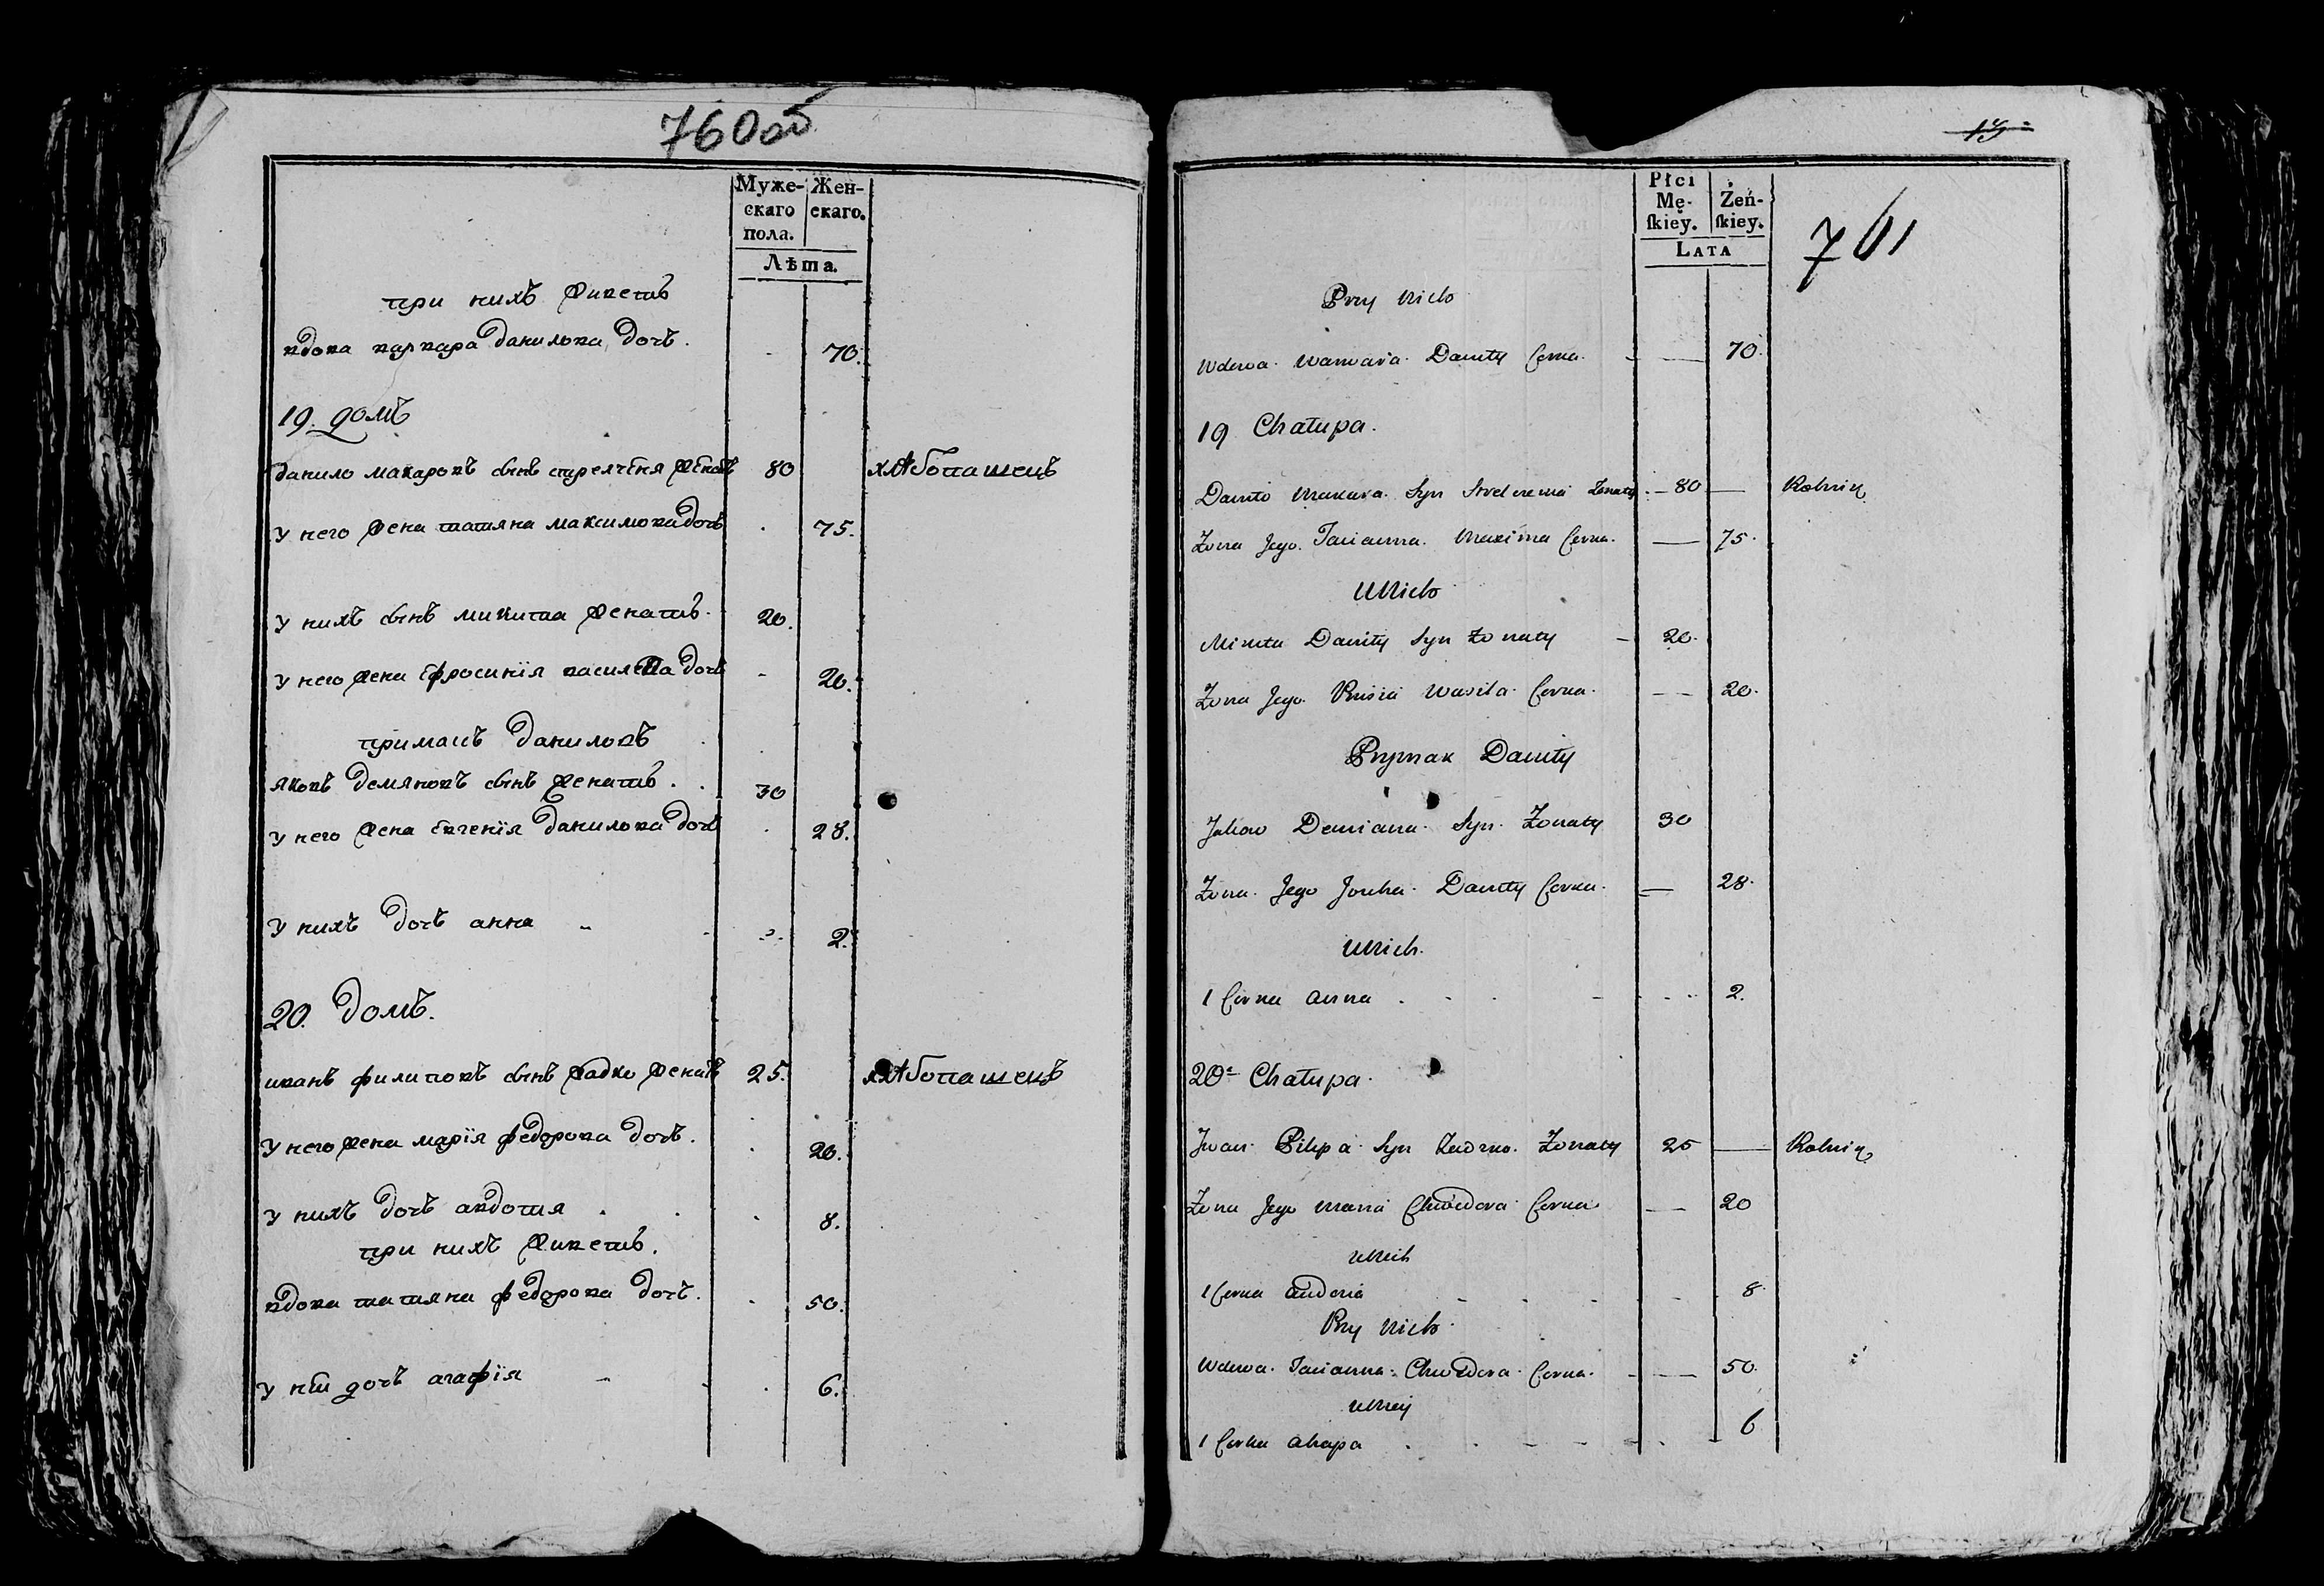 760 об
Муже-
скаго
пола.
Жен-
скаго.
Лѣта.
при нихъ живетъ
вдова варвара данилова дочъ. - 70.
19. домъ
данило макаровъ сынъ женатъ 80 хлѣбопашецъ
У него жена татяна максимова дочъ . 75.
У нихъ сынъ микита женатъ. 20.
У него жена Ефросинїя василева дочъ - 20.
примацъ даниловъ
яковъ демяновъ сынъ женатъ . . 30
У него жена Евгенїя данилова дочъ . 28.
У нихъ дочъ анна - - 2.
20. домъ.
иванъ филиповъ сынъ женатъ 25. хлѣбопашецъ
У него жена марїя федорова дочъ. . 20.
У нихъ дочъ авдотия . . . 8.
при нихъ живетъ.
вдова татяна федорова дочъ. . 50.
У ней дочъ агафїя - - . 6.
15
761
Płci
Mę-
ſkiey.
Żeń-
ſkiey.
LATA
Przy Nich
Wdowa Warwara Daniły Corka. - — 70.
19 Chałupa.
Daniło Makara Syn Żonaty — 80 — Rolnik
Żona Jego. Tacianna. Maxima Corka. — 75.
U Nich
Mikita Daniły Syn Żonaty - 20.
Żona Jego. Prusia Wasila Corka. — 20.
Prymak Daniły
Jakow Demiana Syn Żonaty 30
Żona Jego Jouha Daniły Corka. — 28.
U Nich.
1 Corka Anna . . . - . . 2.
20 Chałupa.
Jwan Pilipa Syn Żonaty 25 — Rolnik
Żona Jego Maria Chwedora Corka — 20
U Nich
1 Corka Audocia - . . - 8.
Przy Nich
Wdowa Tacianna Chwedora Corka. - — 50.
U Niey
1 Corka Ahapa . . - - - . - 6